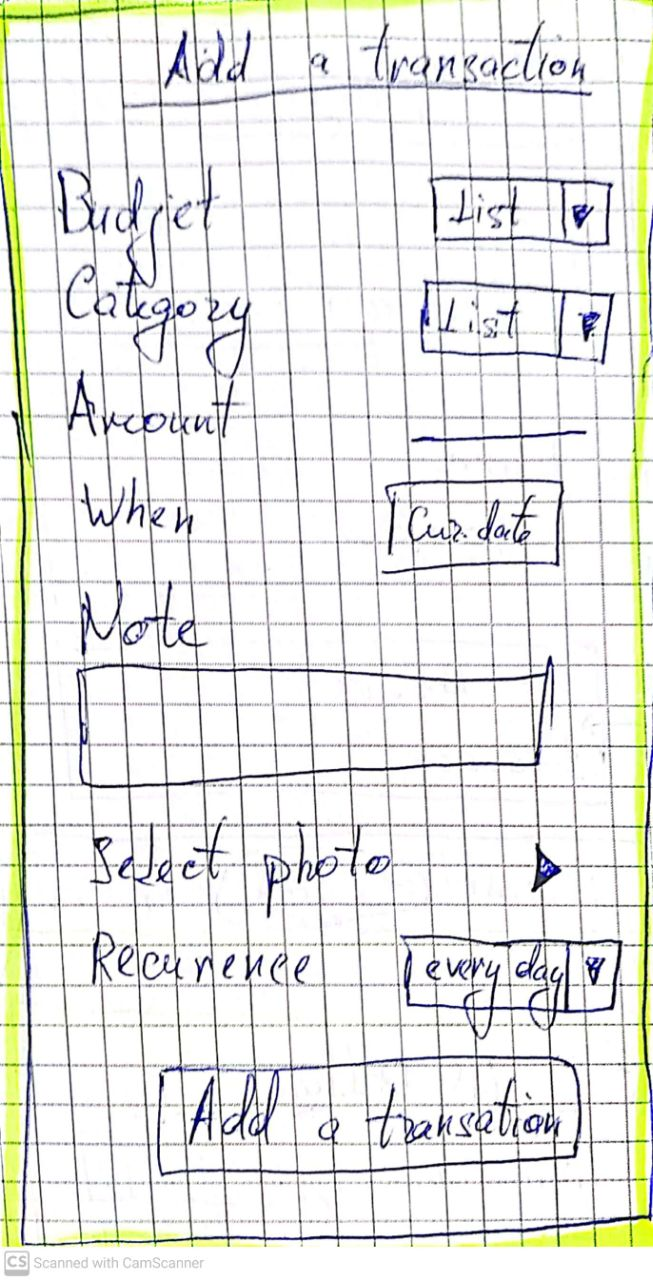 Add a transaction
Budjet List
Category List
Amount
When Cur. date
Note
Select photo
Recurence every day
Add a transation
CS Scanned with CamScanner